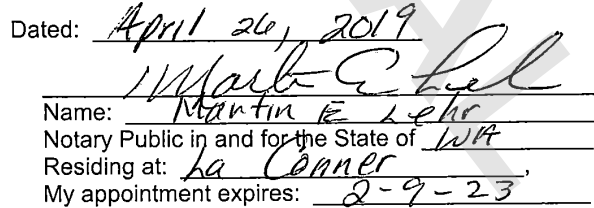 Dated: April 26, 2019
Martin E Lehr
Name: Martin E Lehr
Notary Public in and for the State of WA
Residing at: La Conner,
My appointment expires: 2-9-23